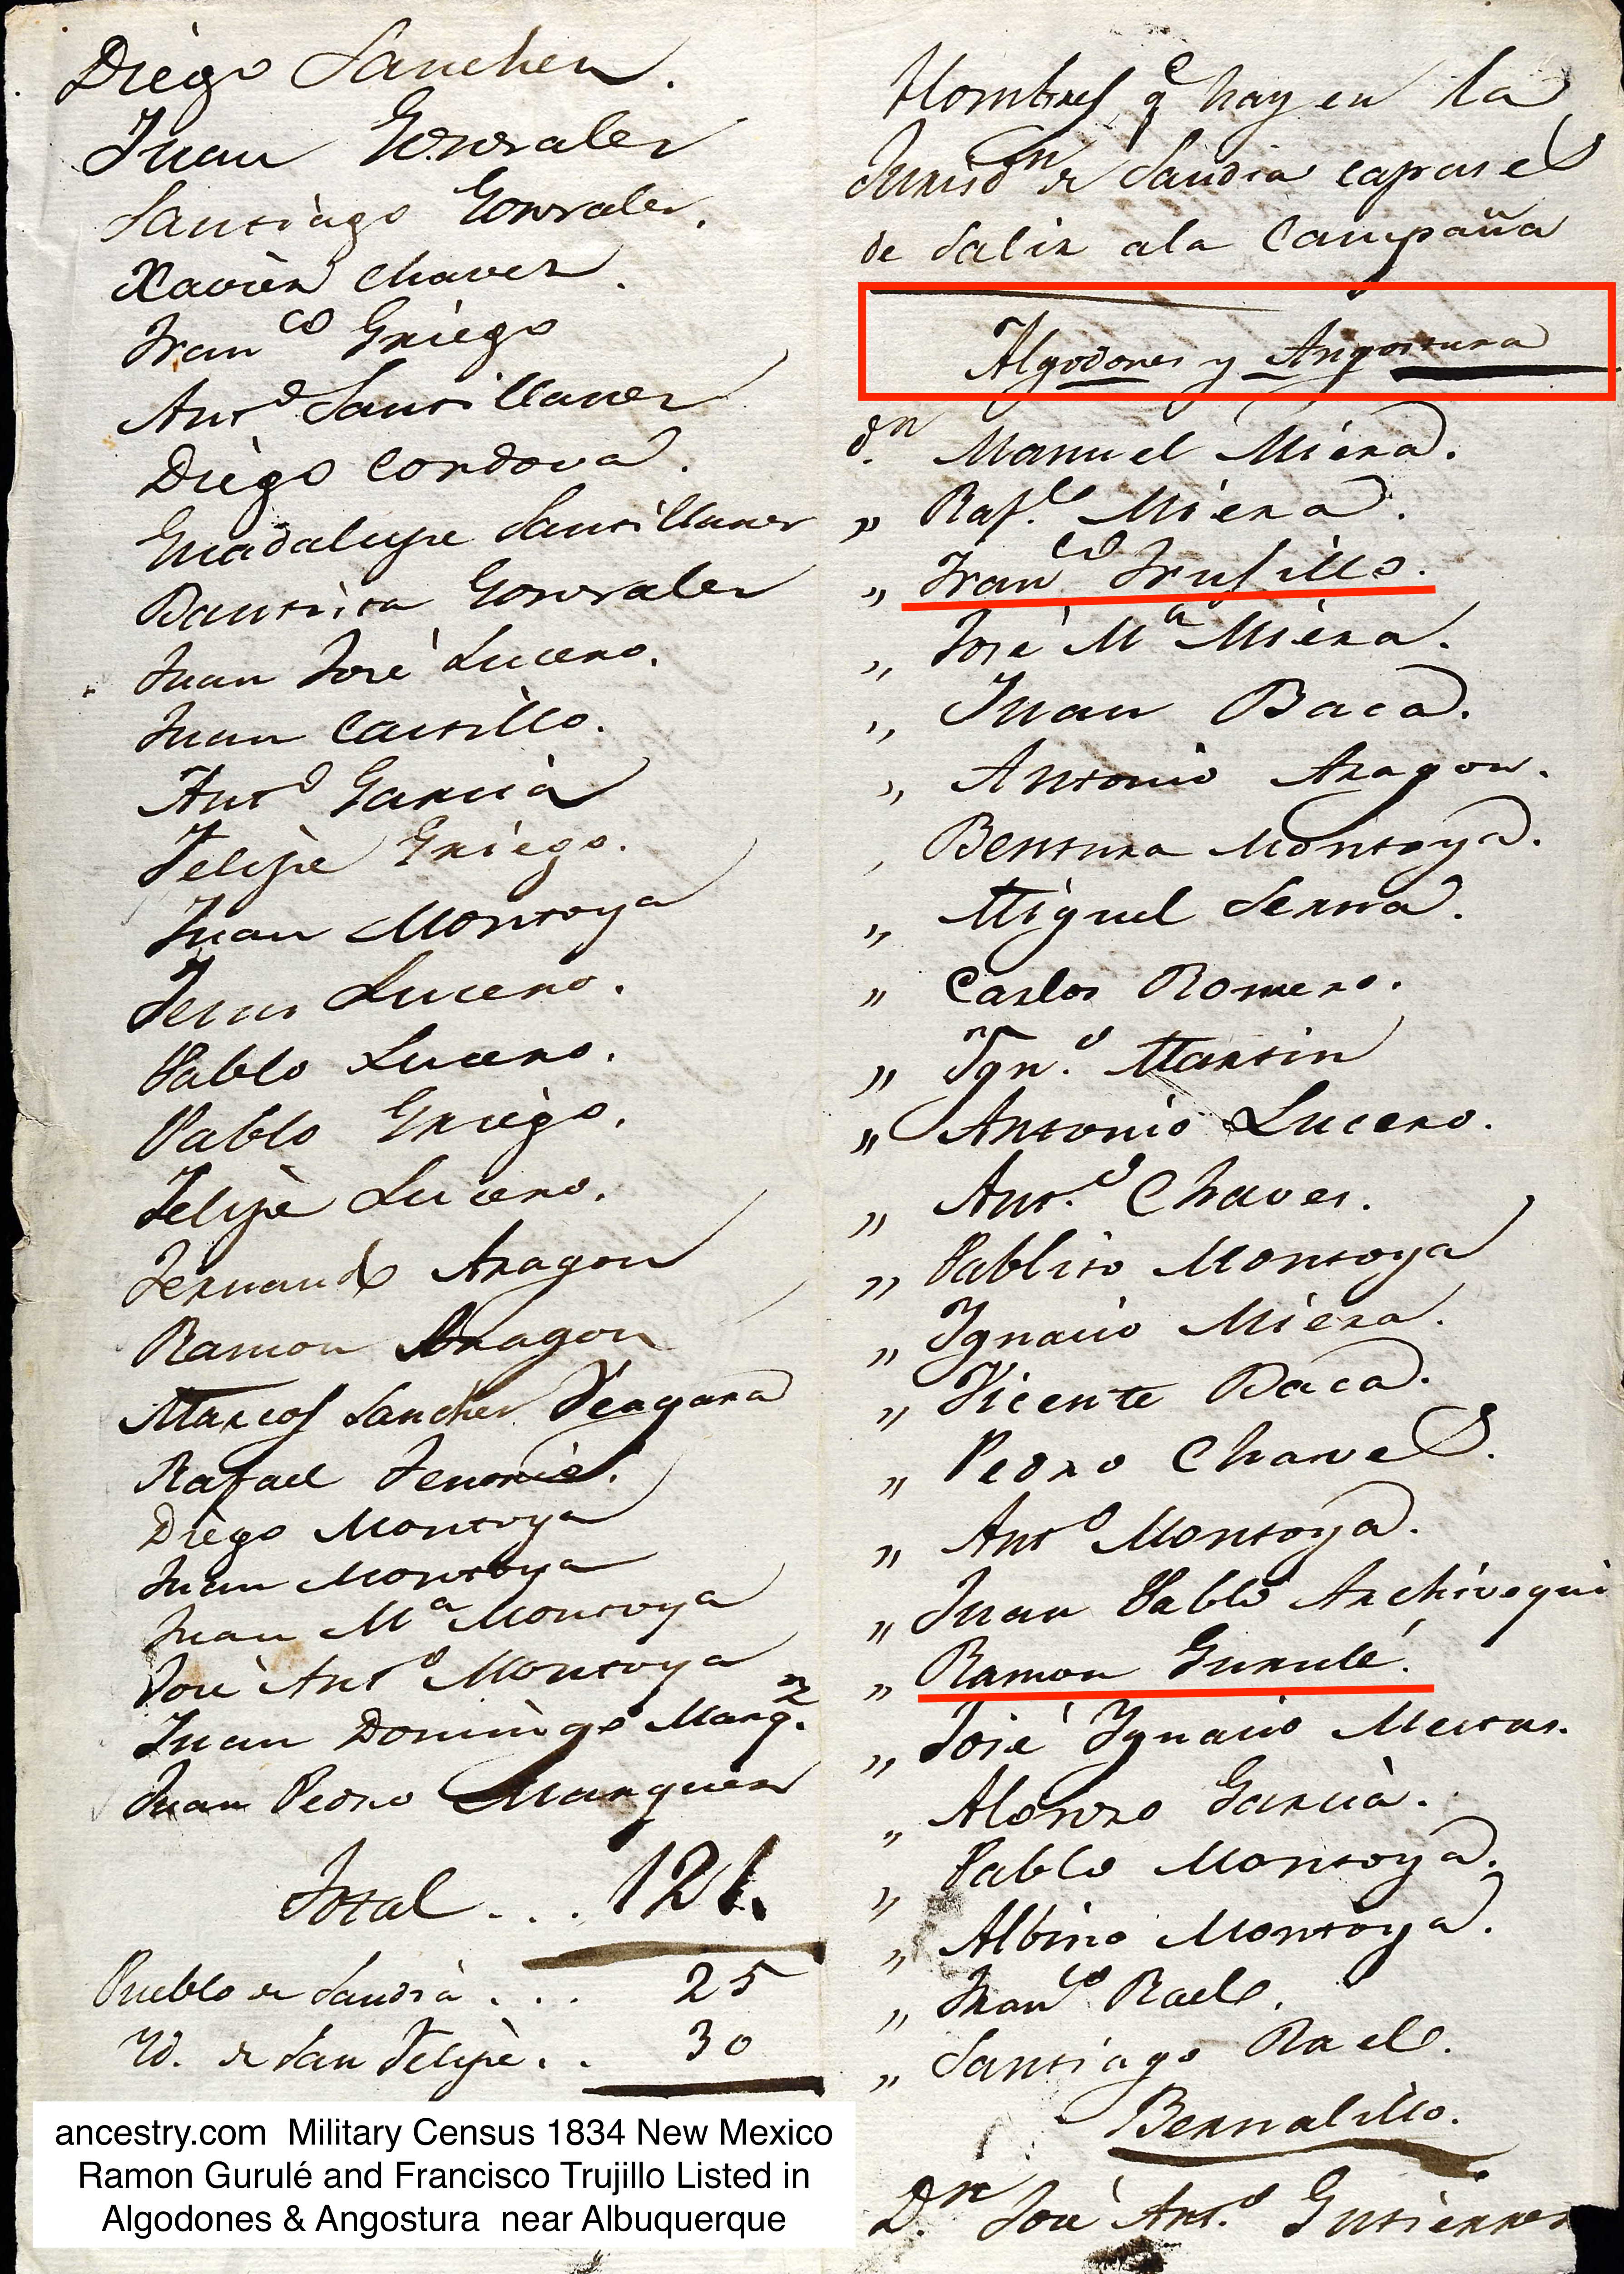 Diego Sanchez.
Juan Gonzales
Santiago Gonzales.
Xavier Chavez.
Franco Griego
Anto Santillanes
Diego Cordova.
Guadalupe Santillanes
Bautista Gonzales
Juan José Lucero.
Juan Castillo.
Anto Garcia
Felipe Griego.
Juan Montoya
Jesus Lucero.
Pablo Lucero.
Pablo Griego.
Felipe Lucero.
Fernando Aragon
Ramon Aragon
Marcos Sanchez Veagara
Rafael
Diego Montoya
Juan Montoya
Juan Ma Montoya
José Anto Montoya
Juan Domingo Marqz.
Juan Pedro Marquez
Total . . . 121.
Pueblo de Sandia . . . 25
Yd. de San Felipe . . 30
ancestry.com Military Census 1834 New Mexico
Ramon Gurulé and Francisco Trujillo Listed in
Algodones & Angostura near Albuquerque
Hombres qe hay en la
Jurisdn de Sandia capases
de Salir ala Campaña
Algodones y Angostura
Dn. Manuel Miera.
„ Rafl. Miera.
„ Franco Trujillo.
„ José Ma Miera.
„ Juan Baca.
„ Antonio Aragon.
„ Bentura Montoya.
„ Miguel Serna.
„ Carlos Romero.
„ Ygno. Martin
„ Antonio Lucero.
„ Anto. Chaves.
„ Pablito Montoya
„ Ygnacio Miera.
„ Vicente Baca.
„ Pedro Chaves.
„ Anto Montoya.
„ Juan Pablo Archivequi
„ Ramon Gurulé.
„ José Ygnacio Mestas.
„ Alonzo Garcia.
„ Pablo Montoya.
„ Albino Montoya.
„ Franco Rael.
„ Santiago Rael.
Bernalillo.
Dn. José Anto. Gutierres